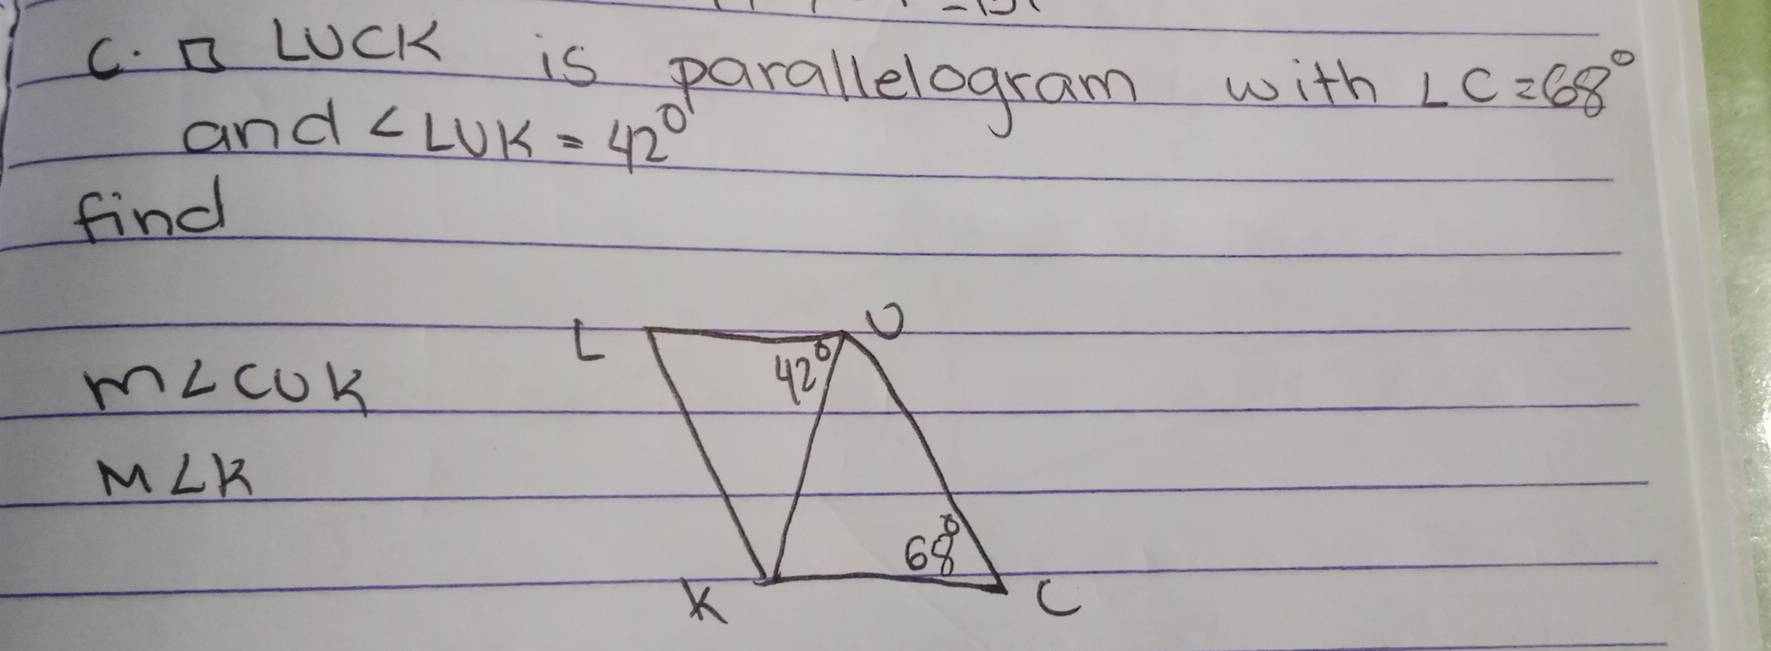 C. ▱ LUCK is parallelogram with ∠C=68°
and <LUK = 42°
find
L U
42°
m∠CUK
M∠K
68°
K C